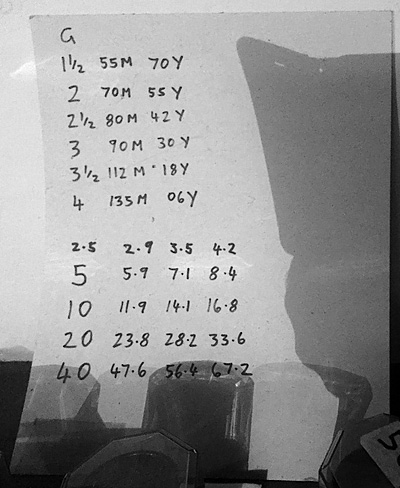 G
1½ 55M 70Y
2 70M 55Y
2½ 80M 42Y
3 90M 30Y
3½ 112M 18Y
4 135M 06Y
2.5 2.9 3.5 4.2
5 5.9 7.1 8.4
10 11.9 14.1 16.8
20 23.8 28.2 33.6
40 47.6 56.4 67.2